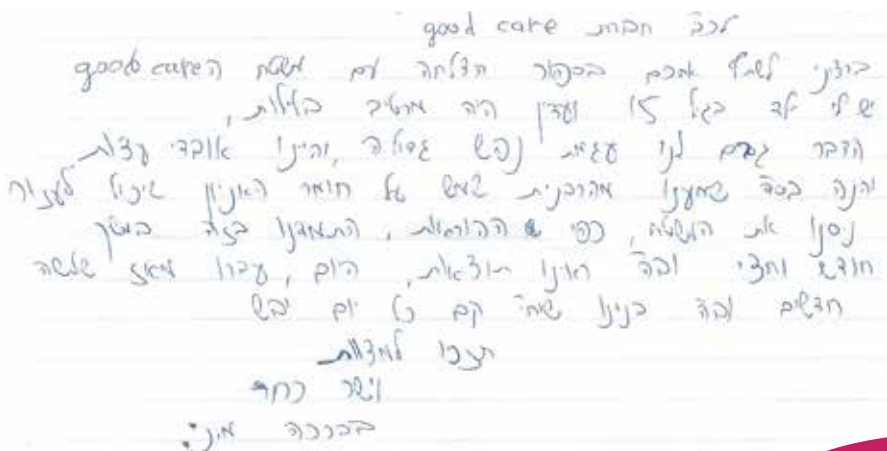 לכב' חברת good care
ברצוני לשתף אתכם בסיפור הצלחה עם משטח הgood care
יש לי ילד בגיל 15 ועדין היה מרטיב בלילות,
הדבר גרם לנו עגמת נפש גדולה, והיינו אובדי עצות
והנה בסד שמענו מהרבנית שמש על חומר האניון שיכול לעזור
נסנו את המשטח, כפי ההוראות, התמדנו בזה במשך
חודש וחצי ובה ראינו תוצאות, היום, עברו מאז שלשה
חדשים ובה בנינו שיח' קם כל יום יבש
תזכו למצוות
ויישר כחכ
בברכה מ.נ.